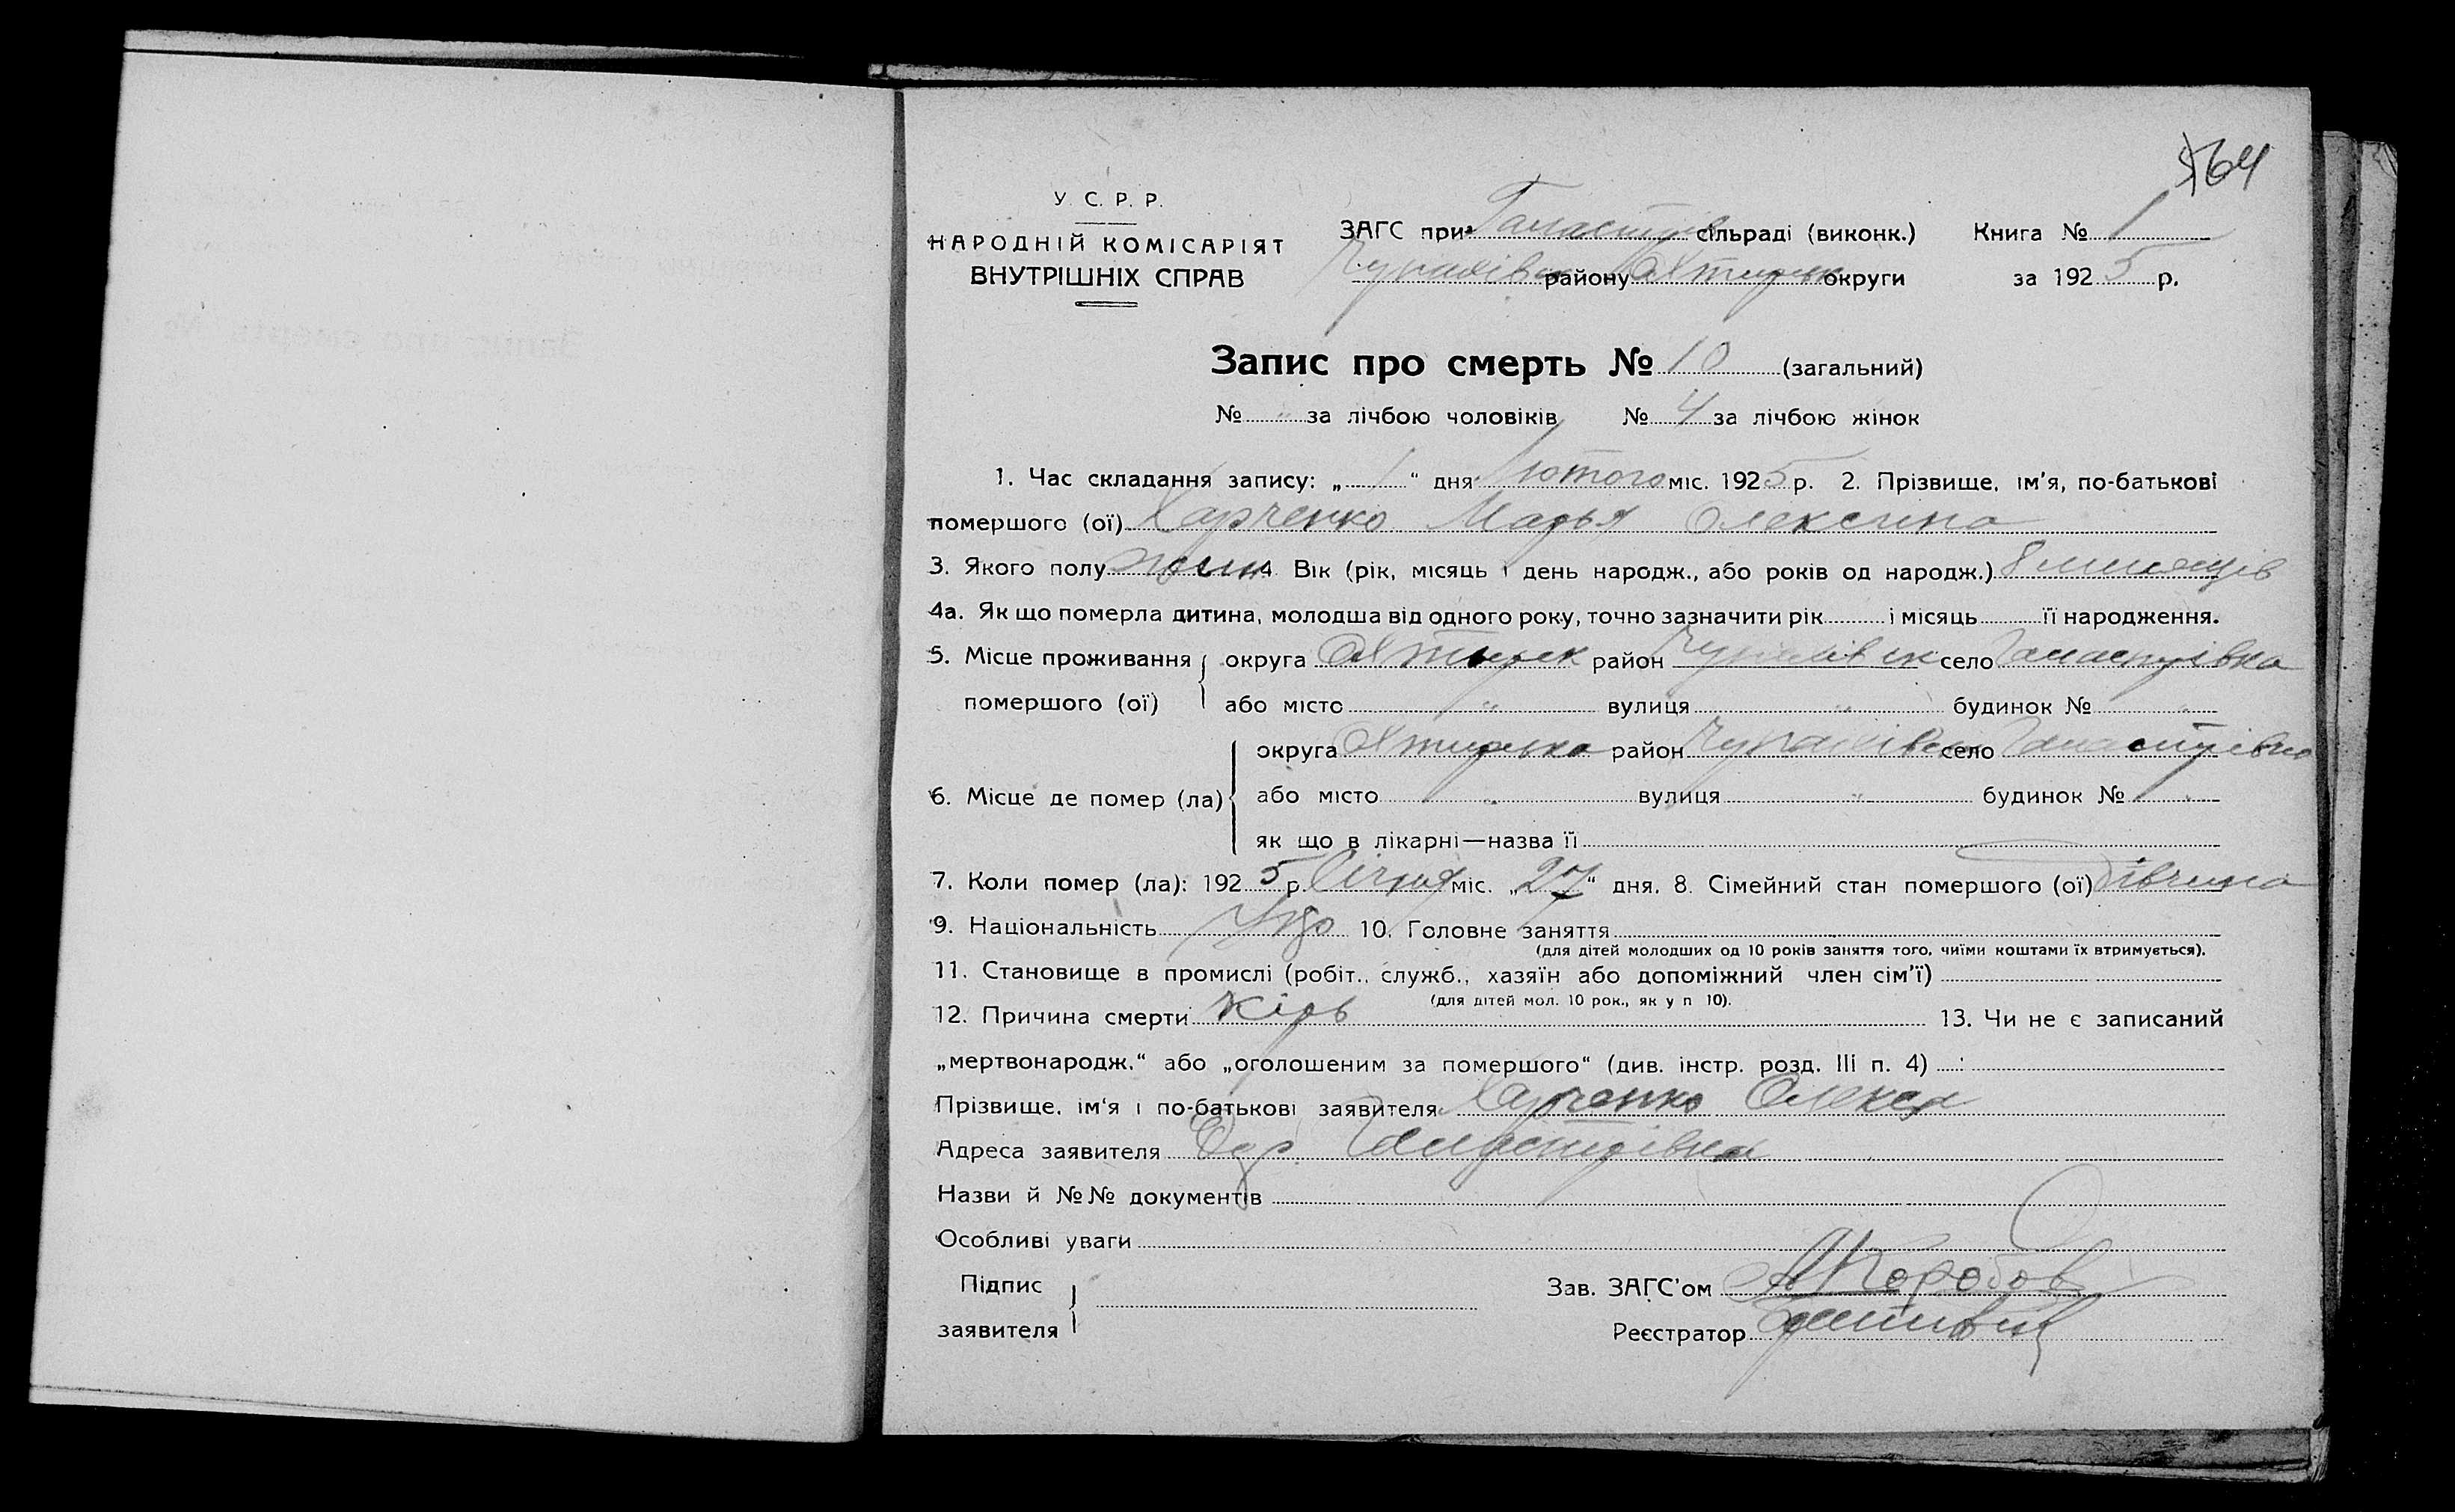 64
У. С. Р. Р.
НАРОДНІЙ КОМІСАРІЯТ
ВНУТРІШНІХ СПРАВ
ЗАГС при сільраді (виконк.) Книга № 1
району округи за 1925 р.
Запис про смерть № 10 (загальний)
№ " за лічбою чоловіків № 4 за лічбою жінок
1. Час складання запису: „1“ дня Лютого міс. 1925 р. 2. Прізвище, ім'я, по-батькові
помершого (ої) Харченко Марья Олексина
3. Якого полу жін 4 Вік (рік, місяць і день народж., або років од народж.) 8
4а. Як що померла дитина, молодша від одного року, точно зазначити рік і місяць її народження.
5. Місце проживання округа район село
помершого (ої) або місто " вулиця " будинок № "
округа район село
6. Місце де помер (ла) або місто " вулиця " будинок № "
як що в лікарні—назва її
7. Коли помер (ла): 1925 р. Січня міс. „27“ дня. 8. Сімейний стан помершого (ої) дівчина
9. Національність Укр 10. Головне заняття
(для дітей молодших од 10 років заняття того, чиїми коштами їх втримується).
11. Становище в промислі (робіт., служб., хазяїн або допоміжний член сім'ї)
(для дітей мол. 10 рок., як у п 10).
12. Причина смерти Кірь 13. Чи не є записаний
„мертвонародж.“ або „оголошеним за помершого“ (див. інстр. розд. III п. 4)
Прізвище, ім'я і по-батькові заявителя Харченко Олекса
Адреса заявителя
Назви й №№ документів
Особливі уваги
Підпис
заявителя
Зав. ЗАГС'ом Коробов
Реєстратор